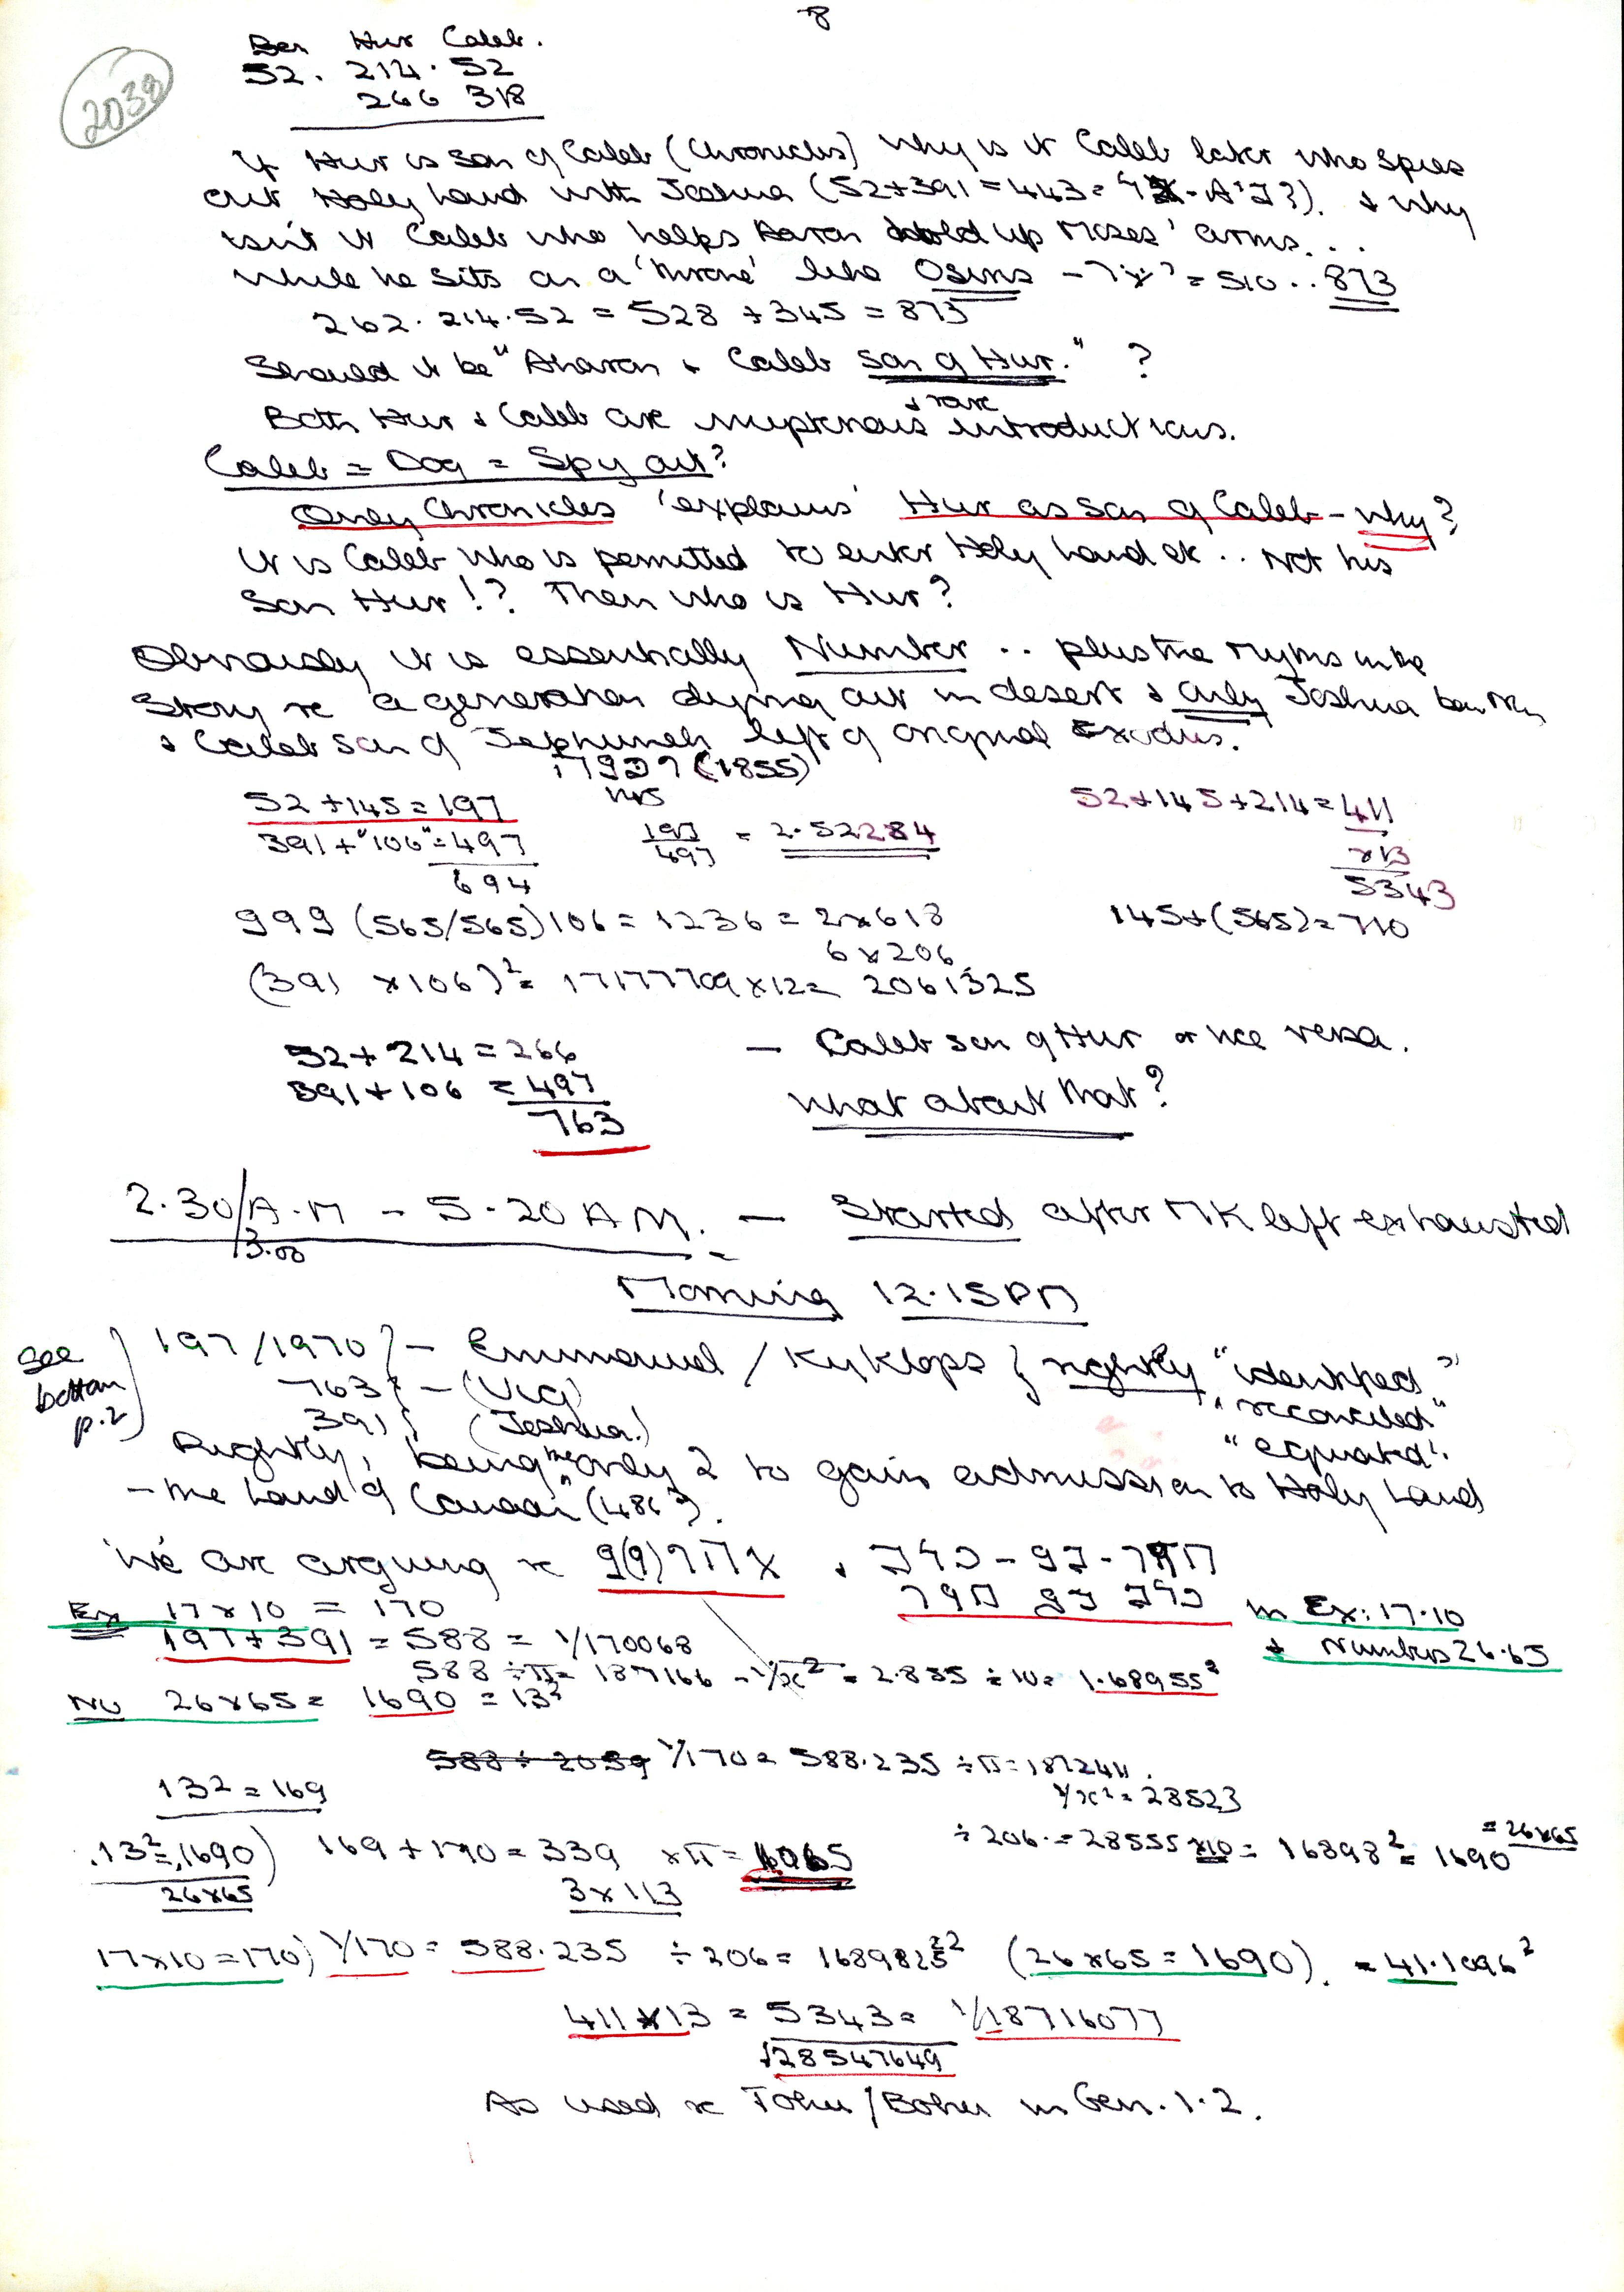 8
2038
Ben Hur Caleb.
52. 214. 52
266 318
If Hur is son of Caleb (Chronicles) why is it Caleb later who spies
out Holy Land with Joshua (52+391=443= ?). & why
isn't it Caleb who helps Aaron hold up Moses' arms...
while he sits on a 'throne' like Osiris - = 510 .. 873
262. 214. 52 = 528 + 345 = 873
Should it be "Aharon & Caleb son of Hur." ?
Both Hur & Caleb are mysterious & rare introductions.
Caleb = Dog = Spy out?
Only Chronicles 'explains' Hur as son of Caleb - why?
It is Caleb who is permitted to enter Holy Land etc .. Not his
son Hur!? Then who is Hur?
Obviously it is essentially Number .. plus the myths in the
story re a generation dying out in desert & only Joshua ben Nun
& Caleb son of Jephunneh left of original Exodus.
(1855)
145
52+145=197
391+"106"=497
694
197/497 = 2.52284
52+145+214=411
x13
5343
999 (565/565) 106 = 1236 = 2x618
6x206
145+(565)=710
(391 x106)² = 17177709 x12= 2061325
52+214=266
391+106 =497
763
- Caleb son of Hur or vice versa.
What about that?
2.30/A.M - 5.20 AM. - Started after MK left exhausted
3.00
Morning 12.15PM
See bottom p.2
197/1970 } - Emmanuel / Kyklops } rightly "identified"
763 } - (VLG) "reconciled"
391 } (Joshua!) "equated".
Rightly, being "the only 2 to gain admission to Holy Land
- the Land of Canaan" (486²).
We are arguing re
in Ex: 17.10
+ Numbers 26.65
Ex 17x10 = 170
197+391 = 588 = 1/170068
588 ÷ π = 187166 - 1/x² = 2.855 ÷ 10= 1.68955²
Nu 26x65= 1690 = 13²
588 ÷ 2059 1/170= 588.235 ÷ π = 187241.
1/x² = 28523
13² = 169
÷ 206.= 28555 x10 = 16898² = 1690 = 26x65
.13²=,1690) 169 + 170 = 339 x π = 1065
26x65
3x113
17x10=170) 1/170 = 588.235 ÷ 206 = 1689825² (26x65=1690). = 41.1096²
411x13 = 5343 = 1/18716077
√28547649
As used re Tohu/Bohu in Gen. 1.2.